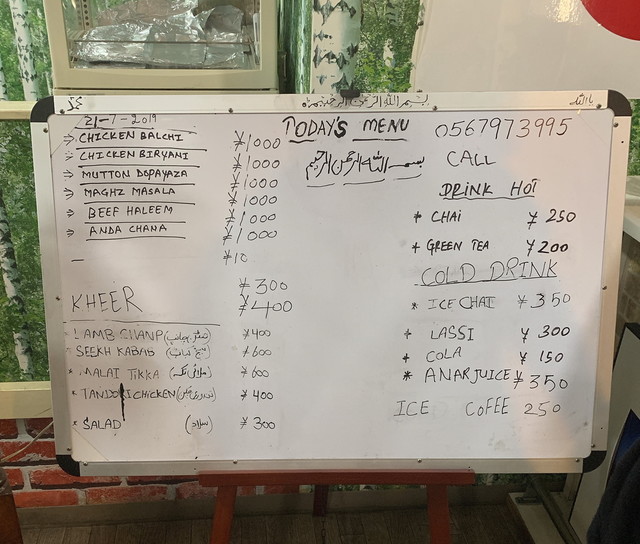 بسم الله الرحمن الرحيم
يا الله
21-7-2019
TODAY'S MENU
0567973995
CALL
بسم الله الرحمن الرحيم
⇒ CHICKEN BALCHI ¥1000
⇒ CHICKEN BIRYANI ¥1000
⇒ MUTTON DOPAYAZA ¥1000
⇒ MAGHZ MASALA ¥1000
⇒ BEEF HALEEM ¥1000
⇒ ANDA CHANA ¥1000
— ¥10
¥300
KHEER ¥400
LAMB CHANP ¥400
SEEKH KABAB (سیخ کباب) ¥600
* MALAI TIKKA (ملائی تکہ) ¥600
* TANDORI CHICKEN (تندوری چکن) ¥400
* SALAD (سلاد) ¥300
DRINK HOT
* CHAI ¥250
* GREEN TEA ¥200
COLD DRINK
* ICE CHAI ¥350
* LASSI ¥300
* COLA ¥150
* ANAR JUICE ¥350
ICE COFEE 250